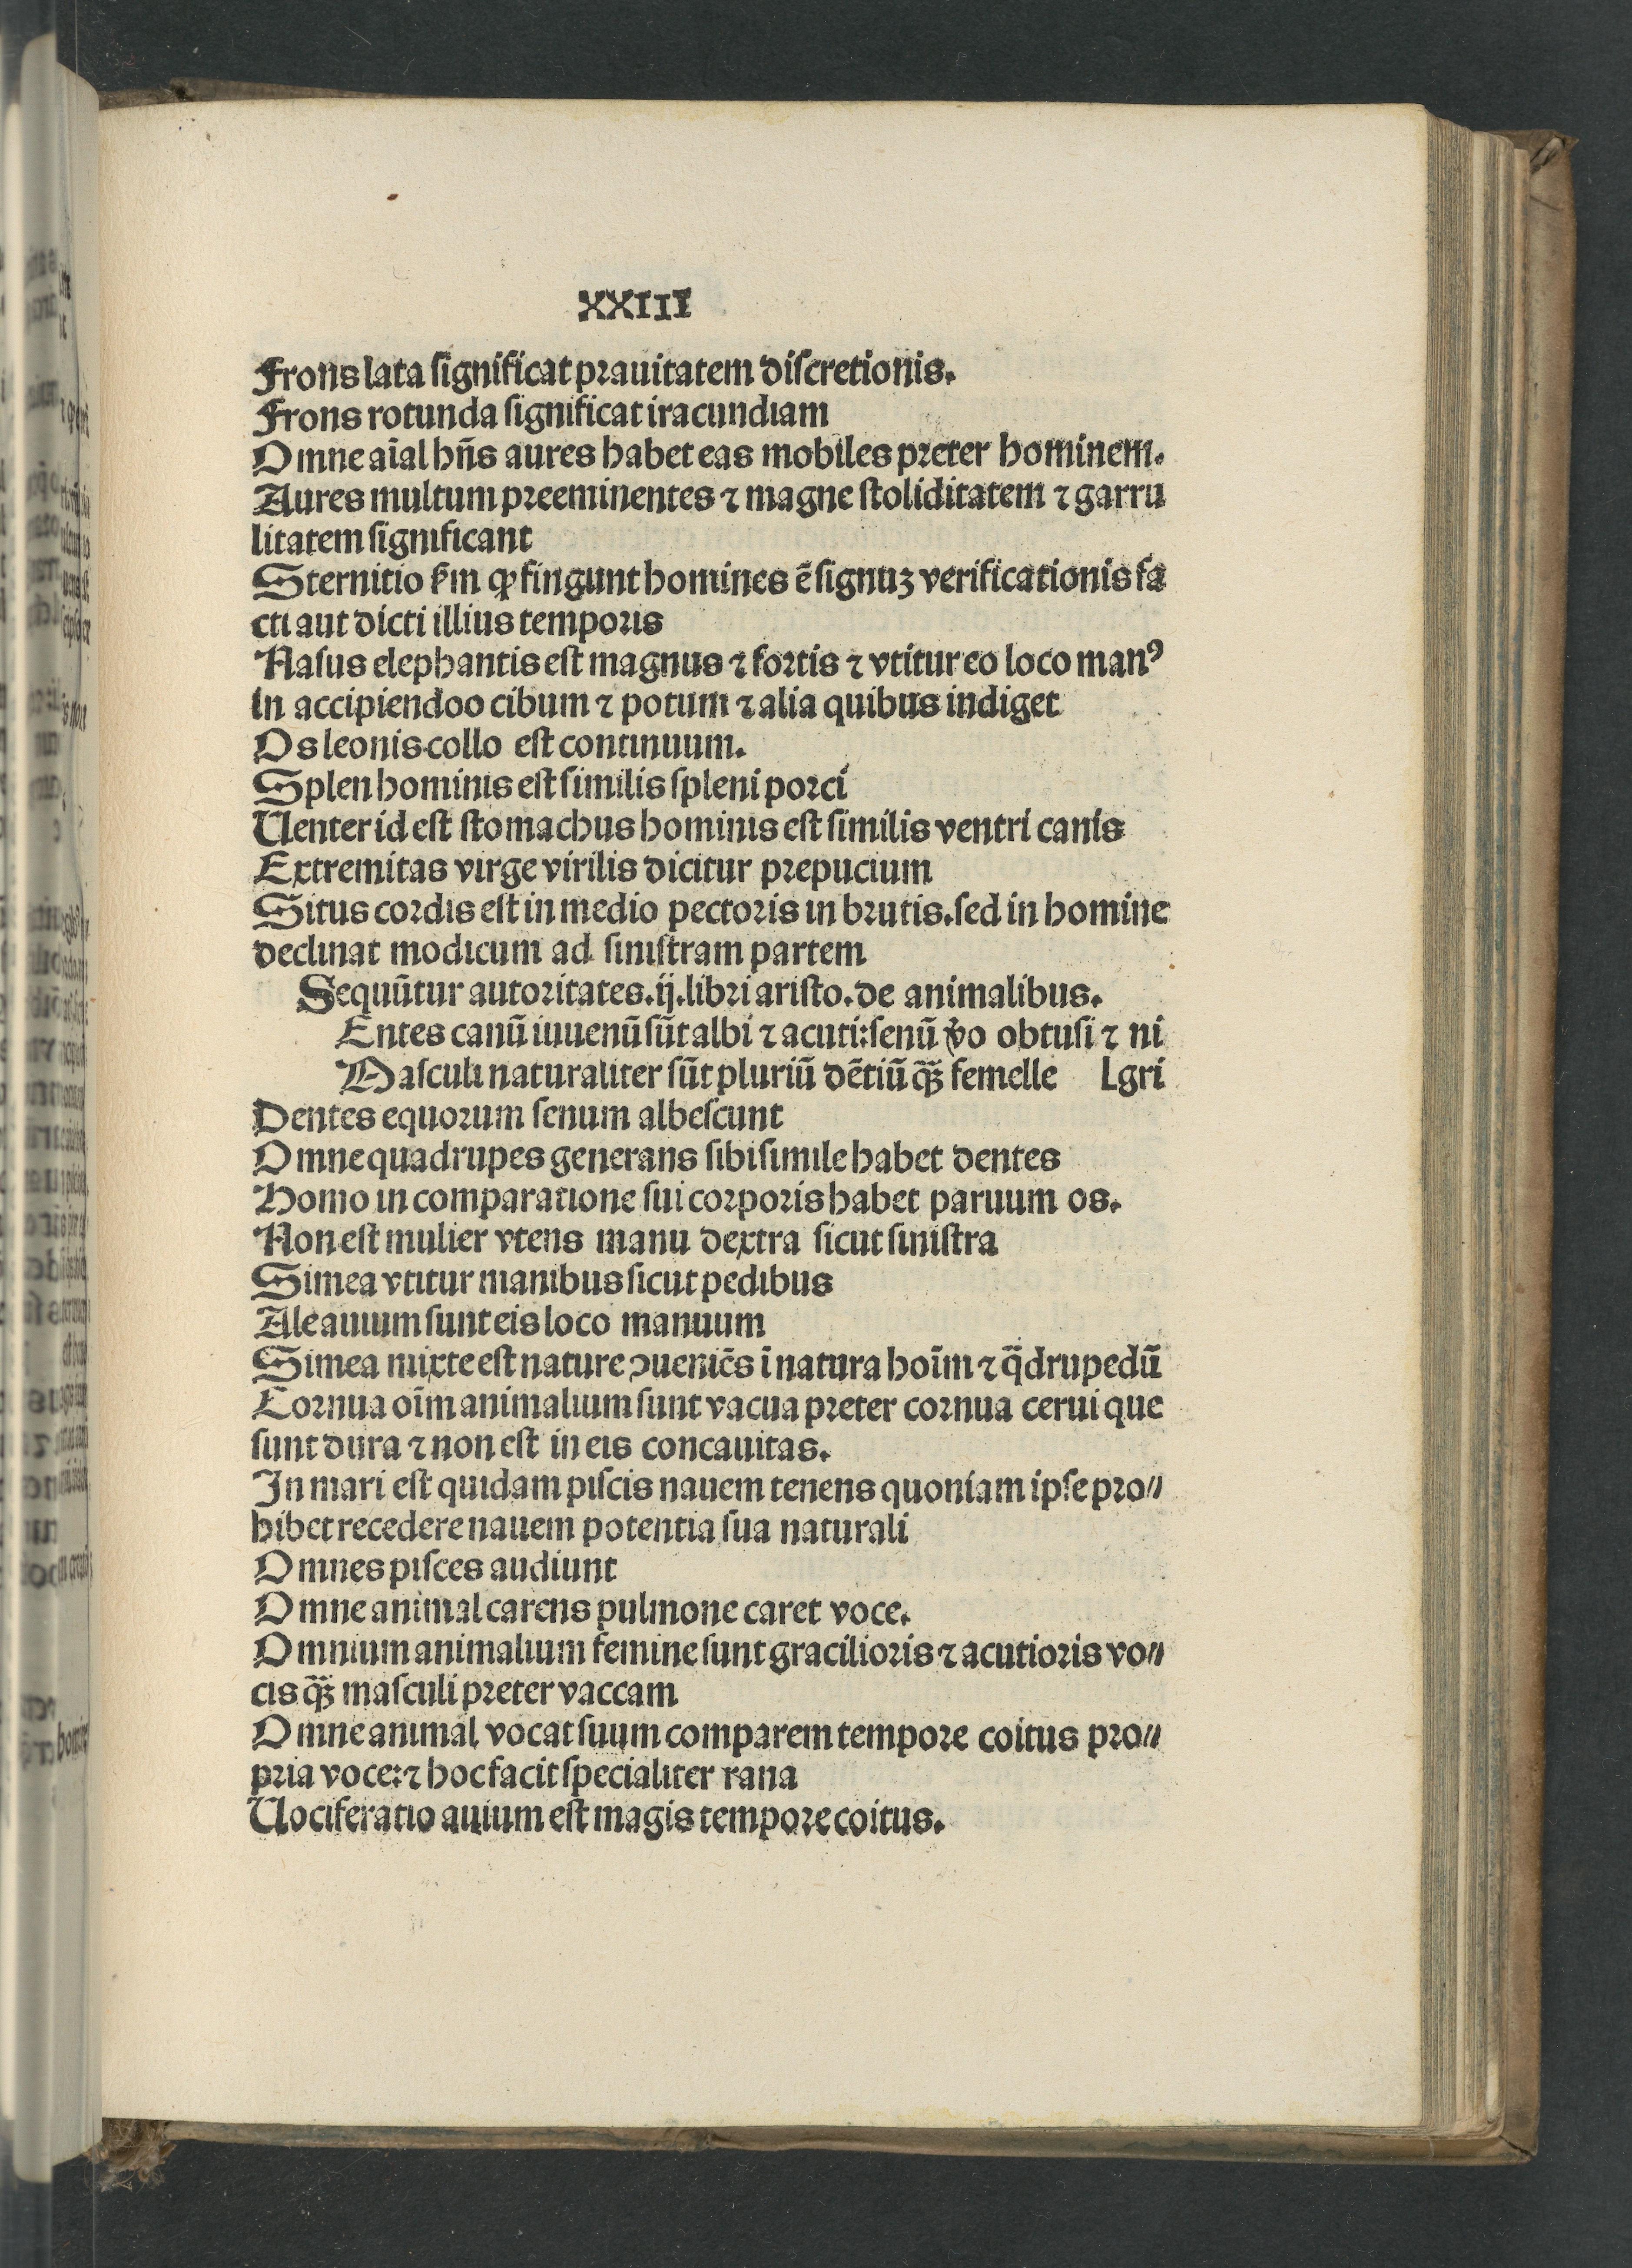 XXIII
Frons lata ſignificat prauitatem diſcretionis.
Frons rotunda ſignificat iracundiam
Omne aīal hñs aures habet eas mobiles preter hominem.
Aures multum preeminentes ⁊ magne ſtoliditatem ⁊ garru
litatem ſignificant
Sternitio ẜm ꝙ fingunt homines ē ſignuꝫ verificationis fa
cti aut dicti illius temporis
Naſus elephantis eſt magnus ⁊ fortis ⁊ vtitur eo loco manꝰ
in accipiendoo cibum ⁊ potum ⁊ alia quibus indiget
Os leonis collo eſt continuum.
Splen hominis eſt ſimilis ſpleni porci
Uenter id eſt ſtomachus hominis eſt ſimilis ventri canis
Extremitas virge virilis dicitur prepucium
Situs cordis eſt in medio pectoris in brutis. ſed in homine
declinat modicum ad ſiniſtram partem
Sequūtur autoritates. ij. libri ariſto. de animalibus.
Entes canū iuuenū ſūt albi ⁊ acuti: ſenū ꝟo obtuſi ⁊ ni
Maſculi naturaliter ſūt pluriū dētiū qꝫ̄ femelle Lgri
Dentes equorum ſenum albeſcunt
Omne quadrupes generans ſibi ſimile habet dentes
Homo in comparatione ſui corporis habet paruum os.
Non eſt mulier vtens manu dextra ſicut ſiniſtra
Simea vtitur manibus ſicut pedibus
Ale auium ſunt eis loco manuum
Simea mixte eſt nature ꝯueniēs ī natura hoīm ⁊ q̄drupedū
Cornua oīm animalium ſunt vacua preter cornua cerui que
ſunt dura ⁊ non eſt in eis concauitas.
In mari eſt quidam piſcis nauem tenens quoniam ipſe pro⸗
hibet recedere nauem potentia ſua naturali
Omnes piſces audiunt
Omne animal carens pulmone caret voce.
Omnium animalium femine ſunt gracilioris ⁊ acutioris vo⸗
cis qꝫ̄ maſculi preter vaccam
Omne animal vocat ſuum comparem tempore coitus pro⸗
pria voce: ⁊ hoc facit ſpecialiter rana
Uociferatio auium eſt magis tempore coitus.